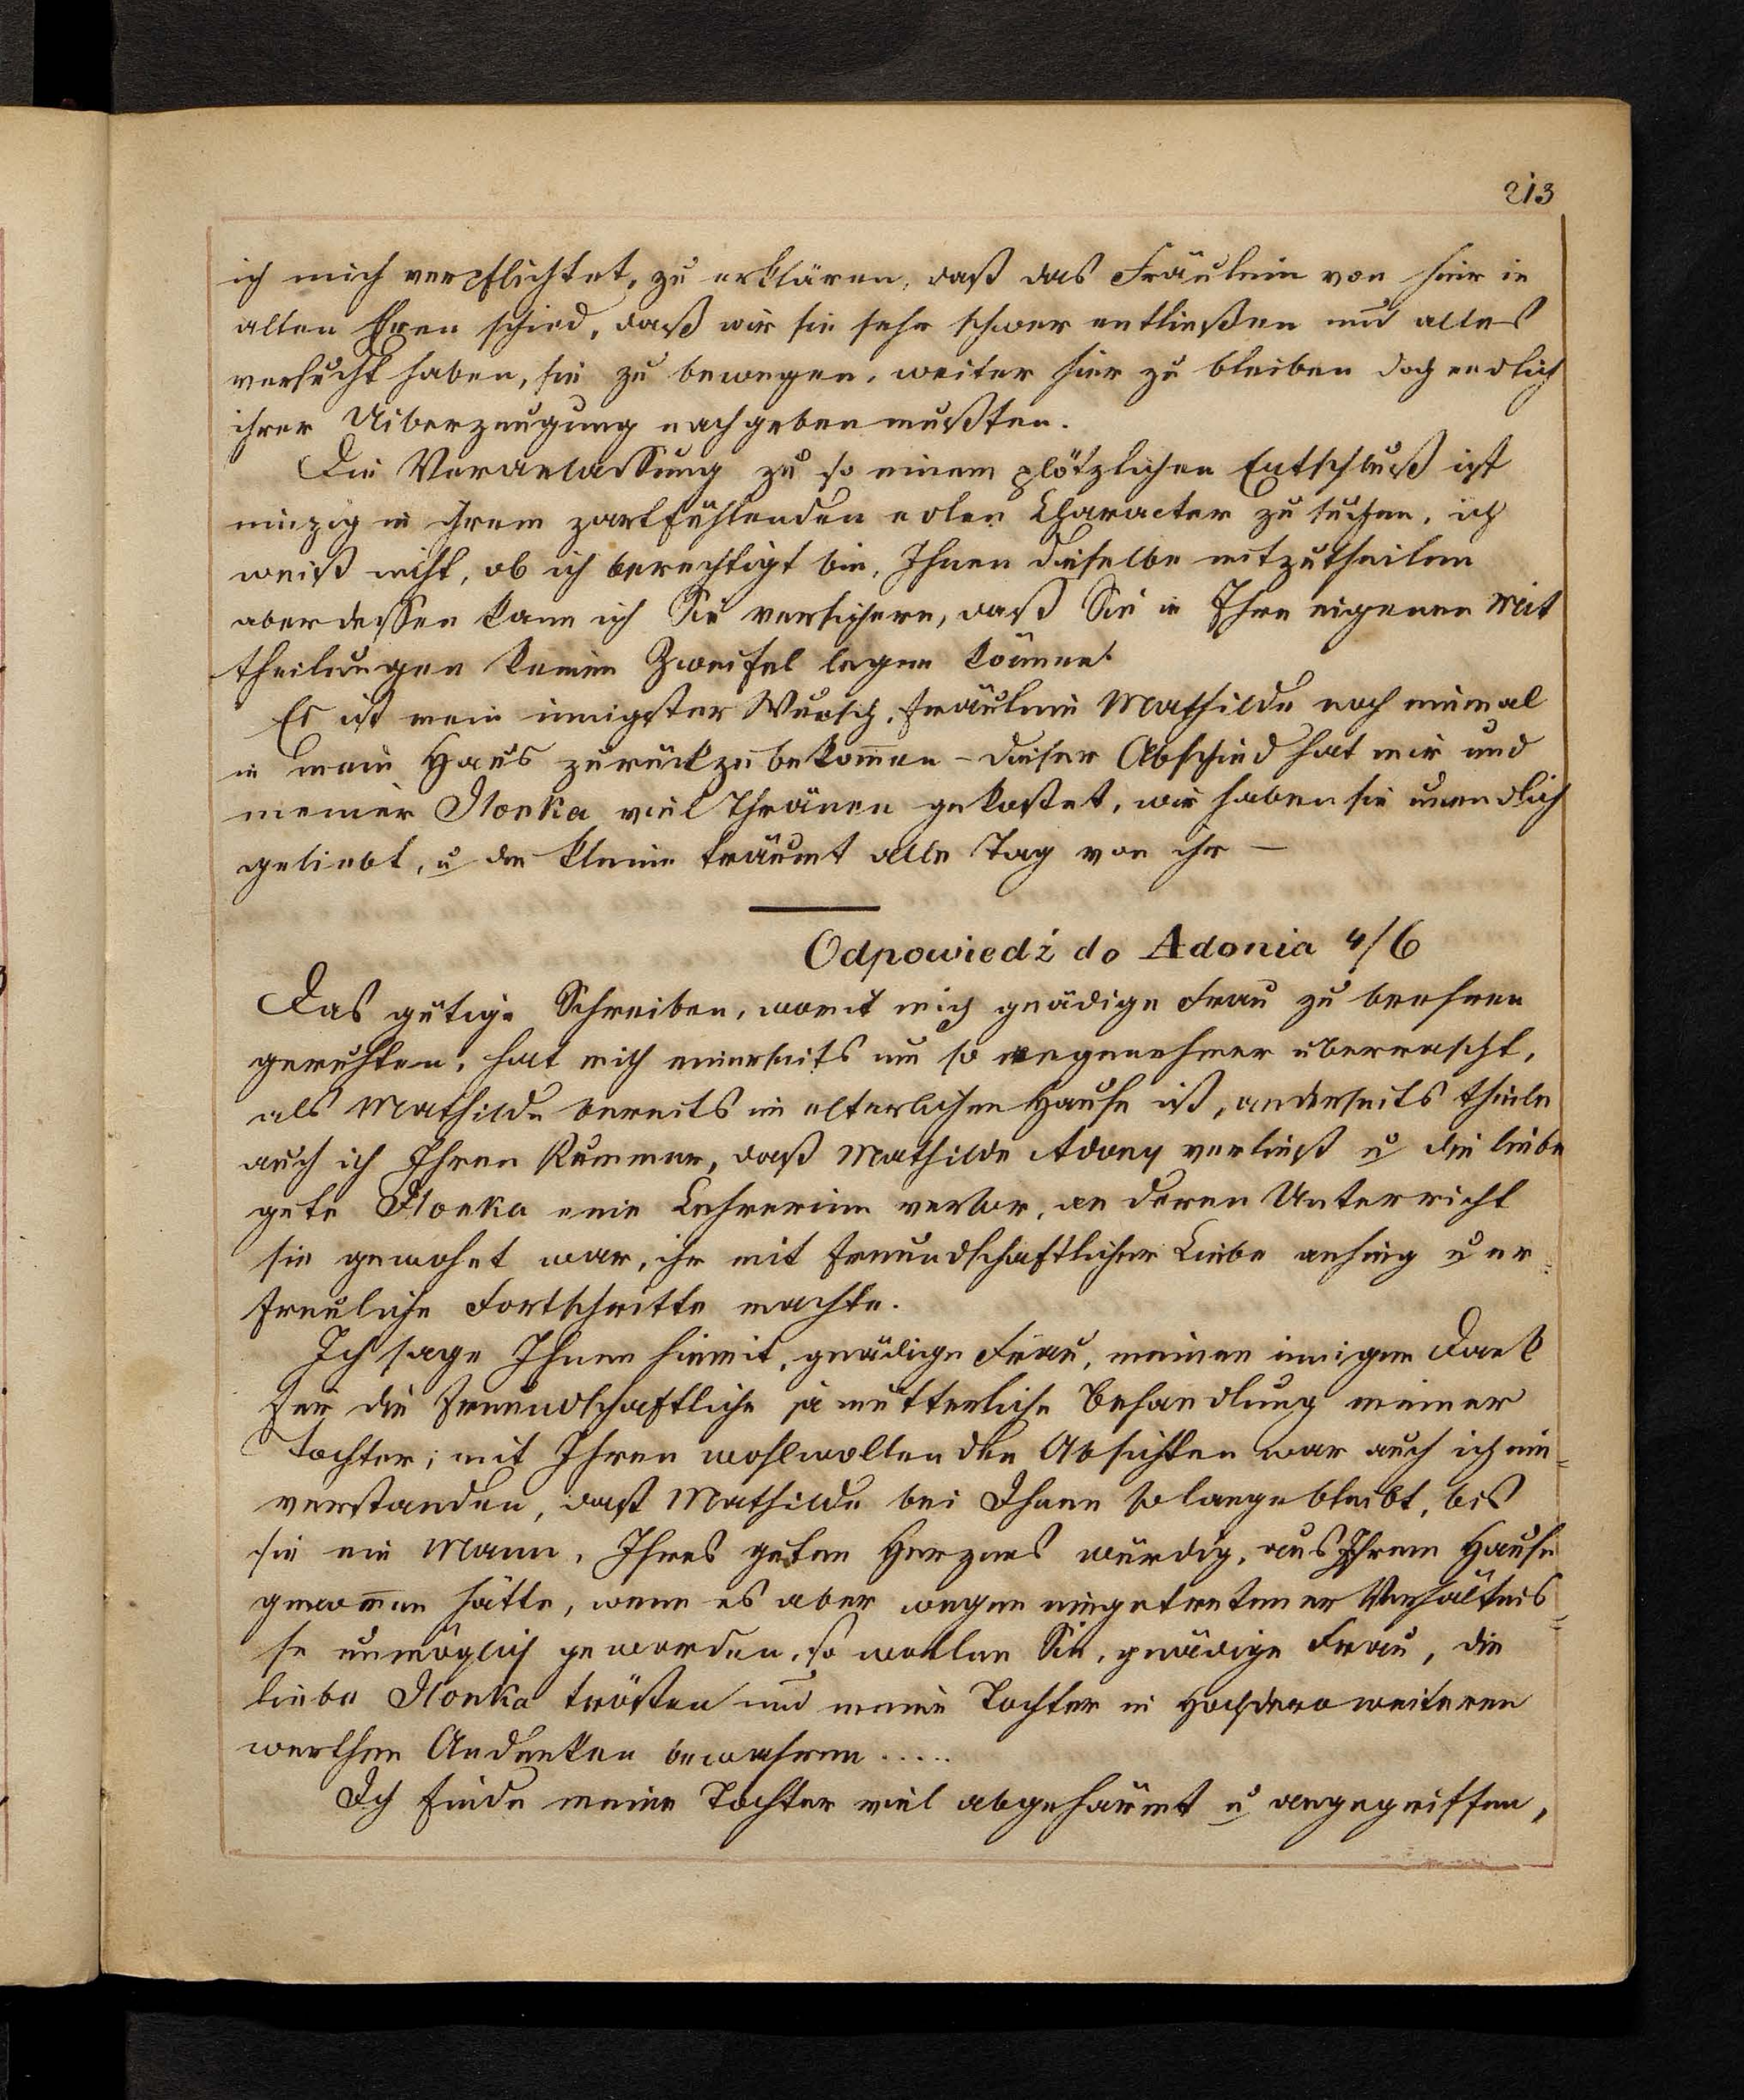 213
ich mich verpflichtet, zu erklären, daß das Fräulein von hier in
allen Ehren schied, daß wir sie sehr schwer entließen und alles
versucht haben, sie zu bewegen, weiter hier zu bleiben doch endlich
ihrer Uiberzeugung nachgeben mußten.
Die Veranlassung zu so einem plötzlichen Entschluß ist
einzig in ihrem zartfühlenden edlen Character zu suchen, ich
weiß nicht, ob ich berechtigt bin, Ihnen dieselbe mitzutheilen
aberdessen kann ich Sie versichern, daß Sie in Ihre eigenen Mit
theilungen keinen Zweifel legen können.
Es ist mein innigster Wunsch, Fräulein Mathilde noch einmal
in mein Haus zurückzubekom̄en – dieser Abschied hat mir und
meiner Ilonka viel Thränen gekostet, wir haben sie unendlich
geliebt, u die kleine träumt alle Tag von ihr —
Odpowiedź do Adonia 4/6
Das gütige Schreiben, womit mich gnädige Frau zu beehren
geruhten, hat mich einerseits um so angenehmer überrascht,
als Mathilde bereits im elterlichen Hause ist, anderseits theile
auch ich Ihren Kummer, daß Mathilde Adony verließ u die liebe
gute Ilonka eine Lehrerinn verlor, an deren Unterricht
sie gewohnt war, ihr mit freundschaftlicher Liebe anhing u er=
freuliche Fortschritte machte.
Ich sage Ihnen hiemit, gnädige Frau, meinen innigen Dank
für die freundschaftliche ja mütterliche Behandlung meiner
Tochter; mit Ihren wohlwollenden Absichten war auch ich ein=
verstanden, daß Mathilde bei Ihnen so lange bleibt, bis
sie ein Mann, Ihres guten Herzens würdig, aus Ihrem Hause
genom̄en hätte, wenn es aber wegen eingetretener Verhältnis=
se unmöglich geworden, so wollen Sie, gnädige Frau, die
liebe Ilonka trösten und meine Tochter in Hochdero weiteren
werthen Andenken bewahren.....
Ich finde meine Tochter viel abgehärmt u angegriffen,